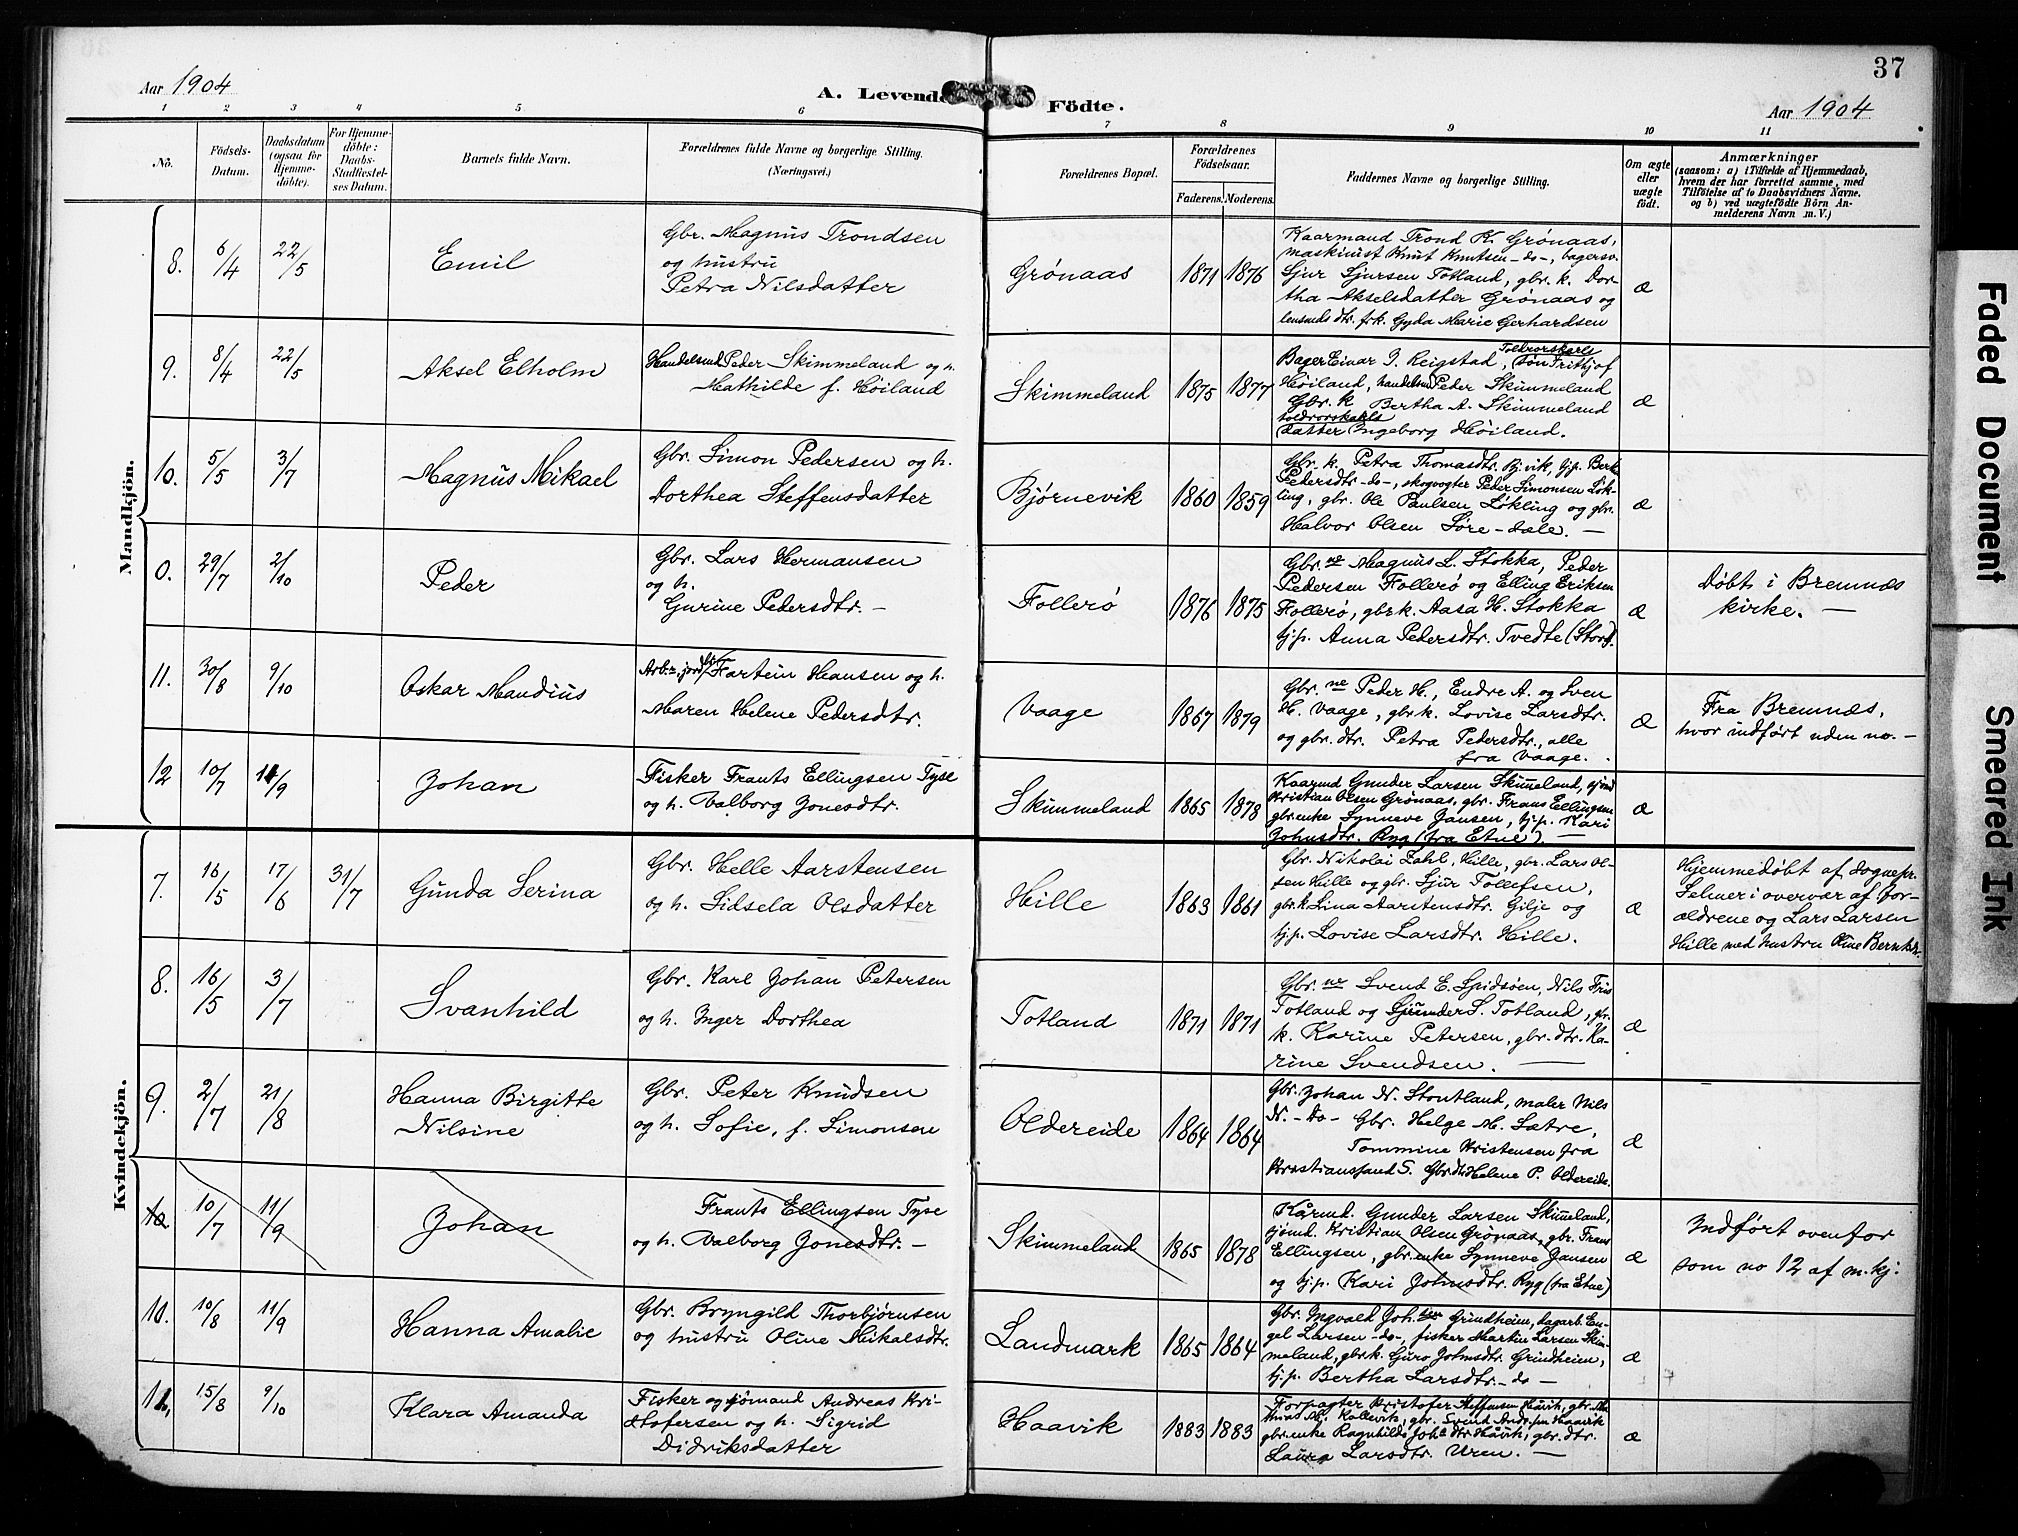 37
Aar 1904
A. Levende Födte.
Aar 1904
1 2 3 4 5 6 7 8 9 10 11
No.
Födsels-Datum.
Daabsdatum (ogsaa for Hjemmedöbte).
For Hjemmedöbte: Daabs-Stadfæstelses Datum.
Barnets fulde Navn.
Forældrenes fulde Navne og borgerlige Stilling.
(Næringsvei.)
Forældrenes Bopæl.
Forældrenes Födselsaar.
Faderens. Moderens.
Faddernes Navne og borgerlige Stilling.
Om ægte eller uægte födt.
Anmærkninger
(saasom: a) i Tilfælde af Hjemmedaab,
hvem der har forrettet samme, med
Tilföielse af to Daabsvidners Navne.
og b) ved uægtefödte Börn An-
melderens Navn m. V.)
Mandkjön.
8. 6/4 22/5 Emil
Gbr. Magnus Trondsen
og hustru
Petra Nilsdatter
Grønaas 1871 1876
Kaarmand Trond K. Grønaas,
maskinist Knut Knutsen -do-, bagersv.
Sjur Sjursen Totland, gbr. k. Dor-
tha Akselsdatter Grønaas og
lensmds dtr. frk. Gyda Marie Gerhardsen
æ
9. 8/4 22/5 Aksel Elholm
Handelsmd Peder Skimmeland og h.
Mathilde f. Høiland
Skimmeland 1875 1877
Bager Einar J. Reigstad, søn Frithjof
Høiland, handelsm Peder Skimmeland
Gbr. k Bertha A. Skimmeland
datter Ingeborg Høiland.
æ
10. 5/5 3/7 Magnus Mikael
Gbr. Simon Pedersen og h.
Dorthea Steffensdatter
Bjørnevik 1860 1859
Gbr. k. Petra Thomasdtr. Bj.vik, tj.p. Berta
Pedersdtr -do-, skogvogter Peder Simonsen Løk-
ling, gbr. Ole Paulsen Løkling og gbr.
Halvor Olsen Søre-dale. —
æ
0. 29/7 2/10 Peder
Gbr. Lars Hermansen
og h.
Gurine Pedersdtr. —
Follerø 1876 1875
Gbr. ne Magnus L. Stokka, Peder
Pedersen Follerø og Elling Eriksen
Follerø, gbr k. Aasa H. Stokka
tj.p. Anna Pedersdtr. Tvedte (Stord).
æ
Døbt i Bremnæs
kirke. —
11. 30/8 9/10 Oskar Mandius
Fartein Hansen og h.
Maren Helene Pedersdtr.
Vaage 1867 1879
Gbr. ne Peder H., Endre A. og Sven
H. Vaage, gbr k. Lovise Larsdtr.
og gbr. dtr. Petra Pedersdtr., alle
fra Vaage.
æ
Fra Bremnæs,
hvor indført uden no. —
12 10/7 11/9 Johan
Fisker Frants Ellingsen Tyse
og h. Valborg Jonesdtr.
Skimmeland 1865 1878
Kaarmd Gunder Larsen Skimeland, sjømd
Kristian Olsen Grønaas, gbr. Frans Ellingsen
gbr. enke Synneve Jansen, tj.p. Kari
Johnsdtr. Ryg (fra Etne). —
æ
Kvindekjön.
7. 16/5 17/6 31/7 Gunda Serina
Gbr. Helle Aarstensen
og h. Sidsela Olsdatter
Hille 1863 1861
Gbr. Nikolai Zahl, Hille, gbr. Lars Ol-
sen Hille og gbr. Sjur Tollefsen,
gbr k Lina Aarstensdtr. Gilje og
tj.p. Lovise Larsdtr. Hille.
æ
Hjemmedøbt af sognepr.
Selmer i overvær af for-
ældrene og Lars Larsen
Hille med hustru
8. 16/5 3/7 Svanhild
Gbr. Karl Johan Petersen
og h. Inger Dorthea
Totland 1871 1871
Gbr. ne Svend E. Spidsøen, Nils Fris
Totland og S. Totland, gbr.
k. Karine Petersen, gbr. dtr. Ka-
rine Svendsen. —
æ
9. 2/7 21/8 Hanna Birgitte
Nilsine
Gbr. Peter Knudsen
og h. Sofie, f. Simonsen
Oldereide 1864 1864
Gbr. Johan N. Stoutland, maler Nils
N. - Do - Gbr. Helge M. Sætre,
Tommine Kristensen fra
Kristianssand S. Gbr dtr Helene P. Oldereide.
æ
10 10/7 11/9 Johan
Frants Ellingsen Tyse
og h. Valborg Jonesdtr. —
Skimmeland 1865 1878
Kårmd. Gunder Larsen Skimeland,
sjømd. Kristian Olsen Grønaas, gbr. Frans
Ellingsen, gbr. enke Synneve Jansen
og tj.p. Kari Johnsdtr. Ryg (fra Etne)
æ
Indført ovenfor
som no 12 af m.kj.
10. 10/8 11/9 Hanna Amalie
Gbr. Bryngild Thorbjørnsen
og hustru Oline Mikalsdtr.
Landmark 1865 1864
Gbr. Ingvald Joh.sen Grindheim, dagarb. En-
gel Larsen -do-, fisker Martin Larsen Skim-
meland, gbr k. Guro Johnsdtr. Grindheim,
tj.p. Bertha Larsdtr. - do -
æ
11, 15/8 9/10 Klara Amanda
Fisker og sjømand Andreas Kri-
stofersen og h. Sigrid
Didriksdatter
Haavik 1883 1883
Forpagter Kristofer Håvik, gbr.
Kallevik, gbr. Svend Haavik
gbr. enke Ragnhilds dtr Håvik, gbr. dtr.
Laura Larsdtr. Uren. —
æ
Faded Document
Smeared Ink